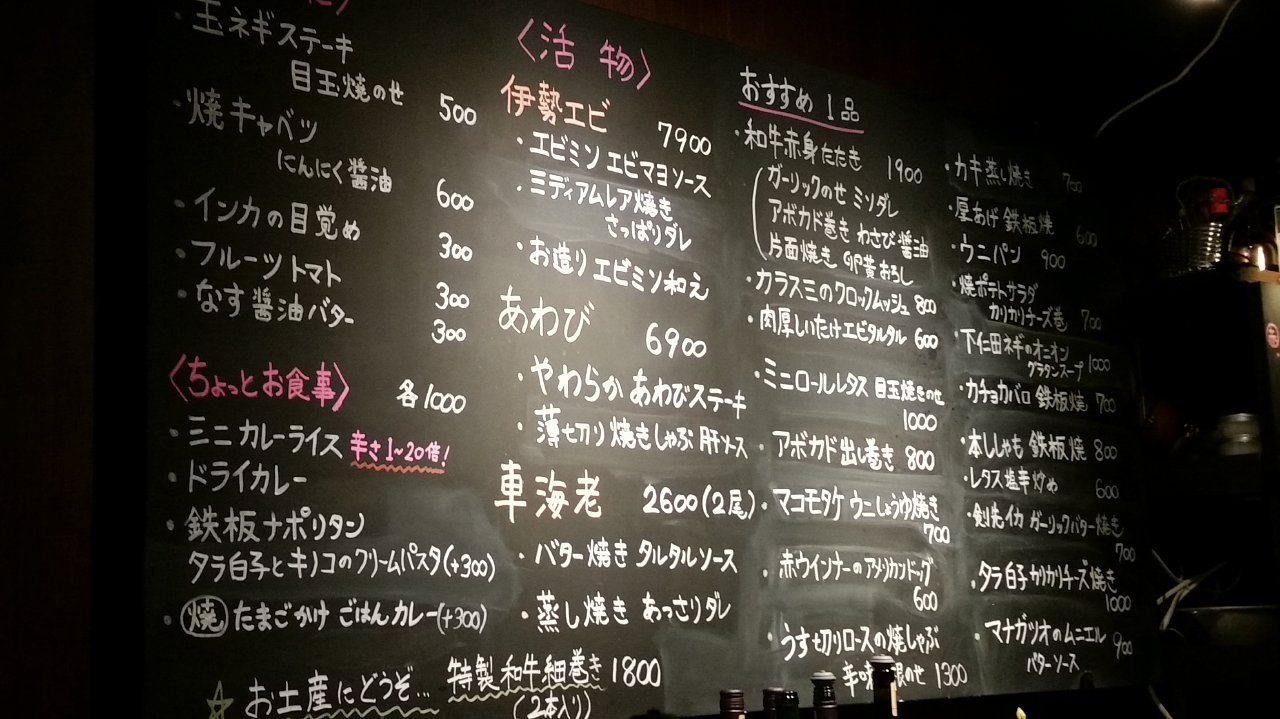 玉ネギステーキ
目玉焼のせ 500
・焼キャベツ
にんにく醤油 600
・インカの目覚め 300
・フルーツトマト 300
・なす醤油バター 300
〈ちょっとお食事〉 各1000
・ミニカレーライス 辛さ1~20倍!
・ドライカレー
・鉄板ナポリタン
タラ白子とキノコのクリームパスタ(+300)
・焼たまごかけごはんカレー(+300)
☆お土産にどうぞ… 特製和牛細巻き 1800
(2本入り)
〈活物〉
伊勢エビ 7900
・エビミソ エビマヨソース
・ミディアムレア焼き
さっぱりダレ
・お造りエビミソ和え
あわび 6900
・やわらかあわびステーキ
・薄切り焼きしゃぶ 肝ソース
車海老 2600(2尾)
・バター焼き タルタルソース
・蒸し焼き あっさりダレ
おすすめ1品
・和牛赤身たたき 1900
ガーリックのせ ミソダレ
アボカド巻き わさび醤油
片面焼き 卵黄おろし
・カラスミのクロックムッシュ 800
・肉厚しいたけエビタルタル 600
・ミニロールレタス 目玉焼きのせ
1000
・アボカド出し巻き 800
・マコモタケ ウニしょうゆ焼き
700
・赤ウインナーのアメリカンドッグ
600
・うす切りロースの焼しゃぶ
のせ 1300
・カキ蒸し焼き 700
・厚あげ鉄板焼 600
・ウニパン 900
・焼ポテトサラダ
カリカリチーズ巻 700
・下仁田ネギのオニオン
グラタンスープ 1000
・カチョカバロ 鉄板焼 700
・本ししゃも 鉄板焼 800
・レタス塩辛炒め 600
・剣先イカ ガーリックバター焼き
700
・タラ白子カリカリチーズ焼き
1000
・マナガツオのムニエル
バターソース 900